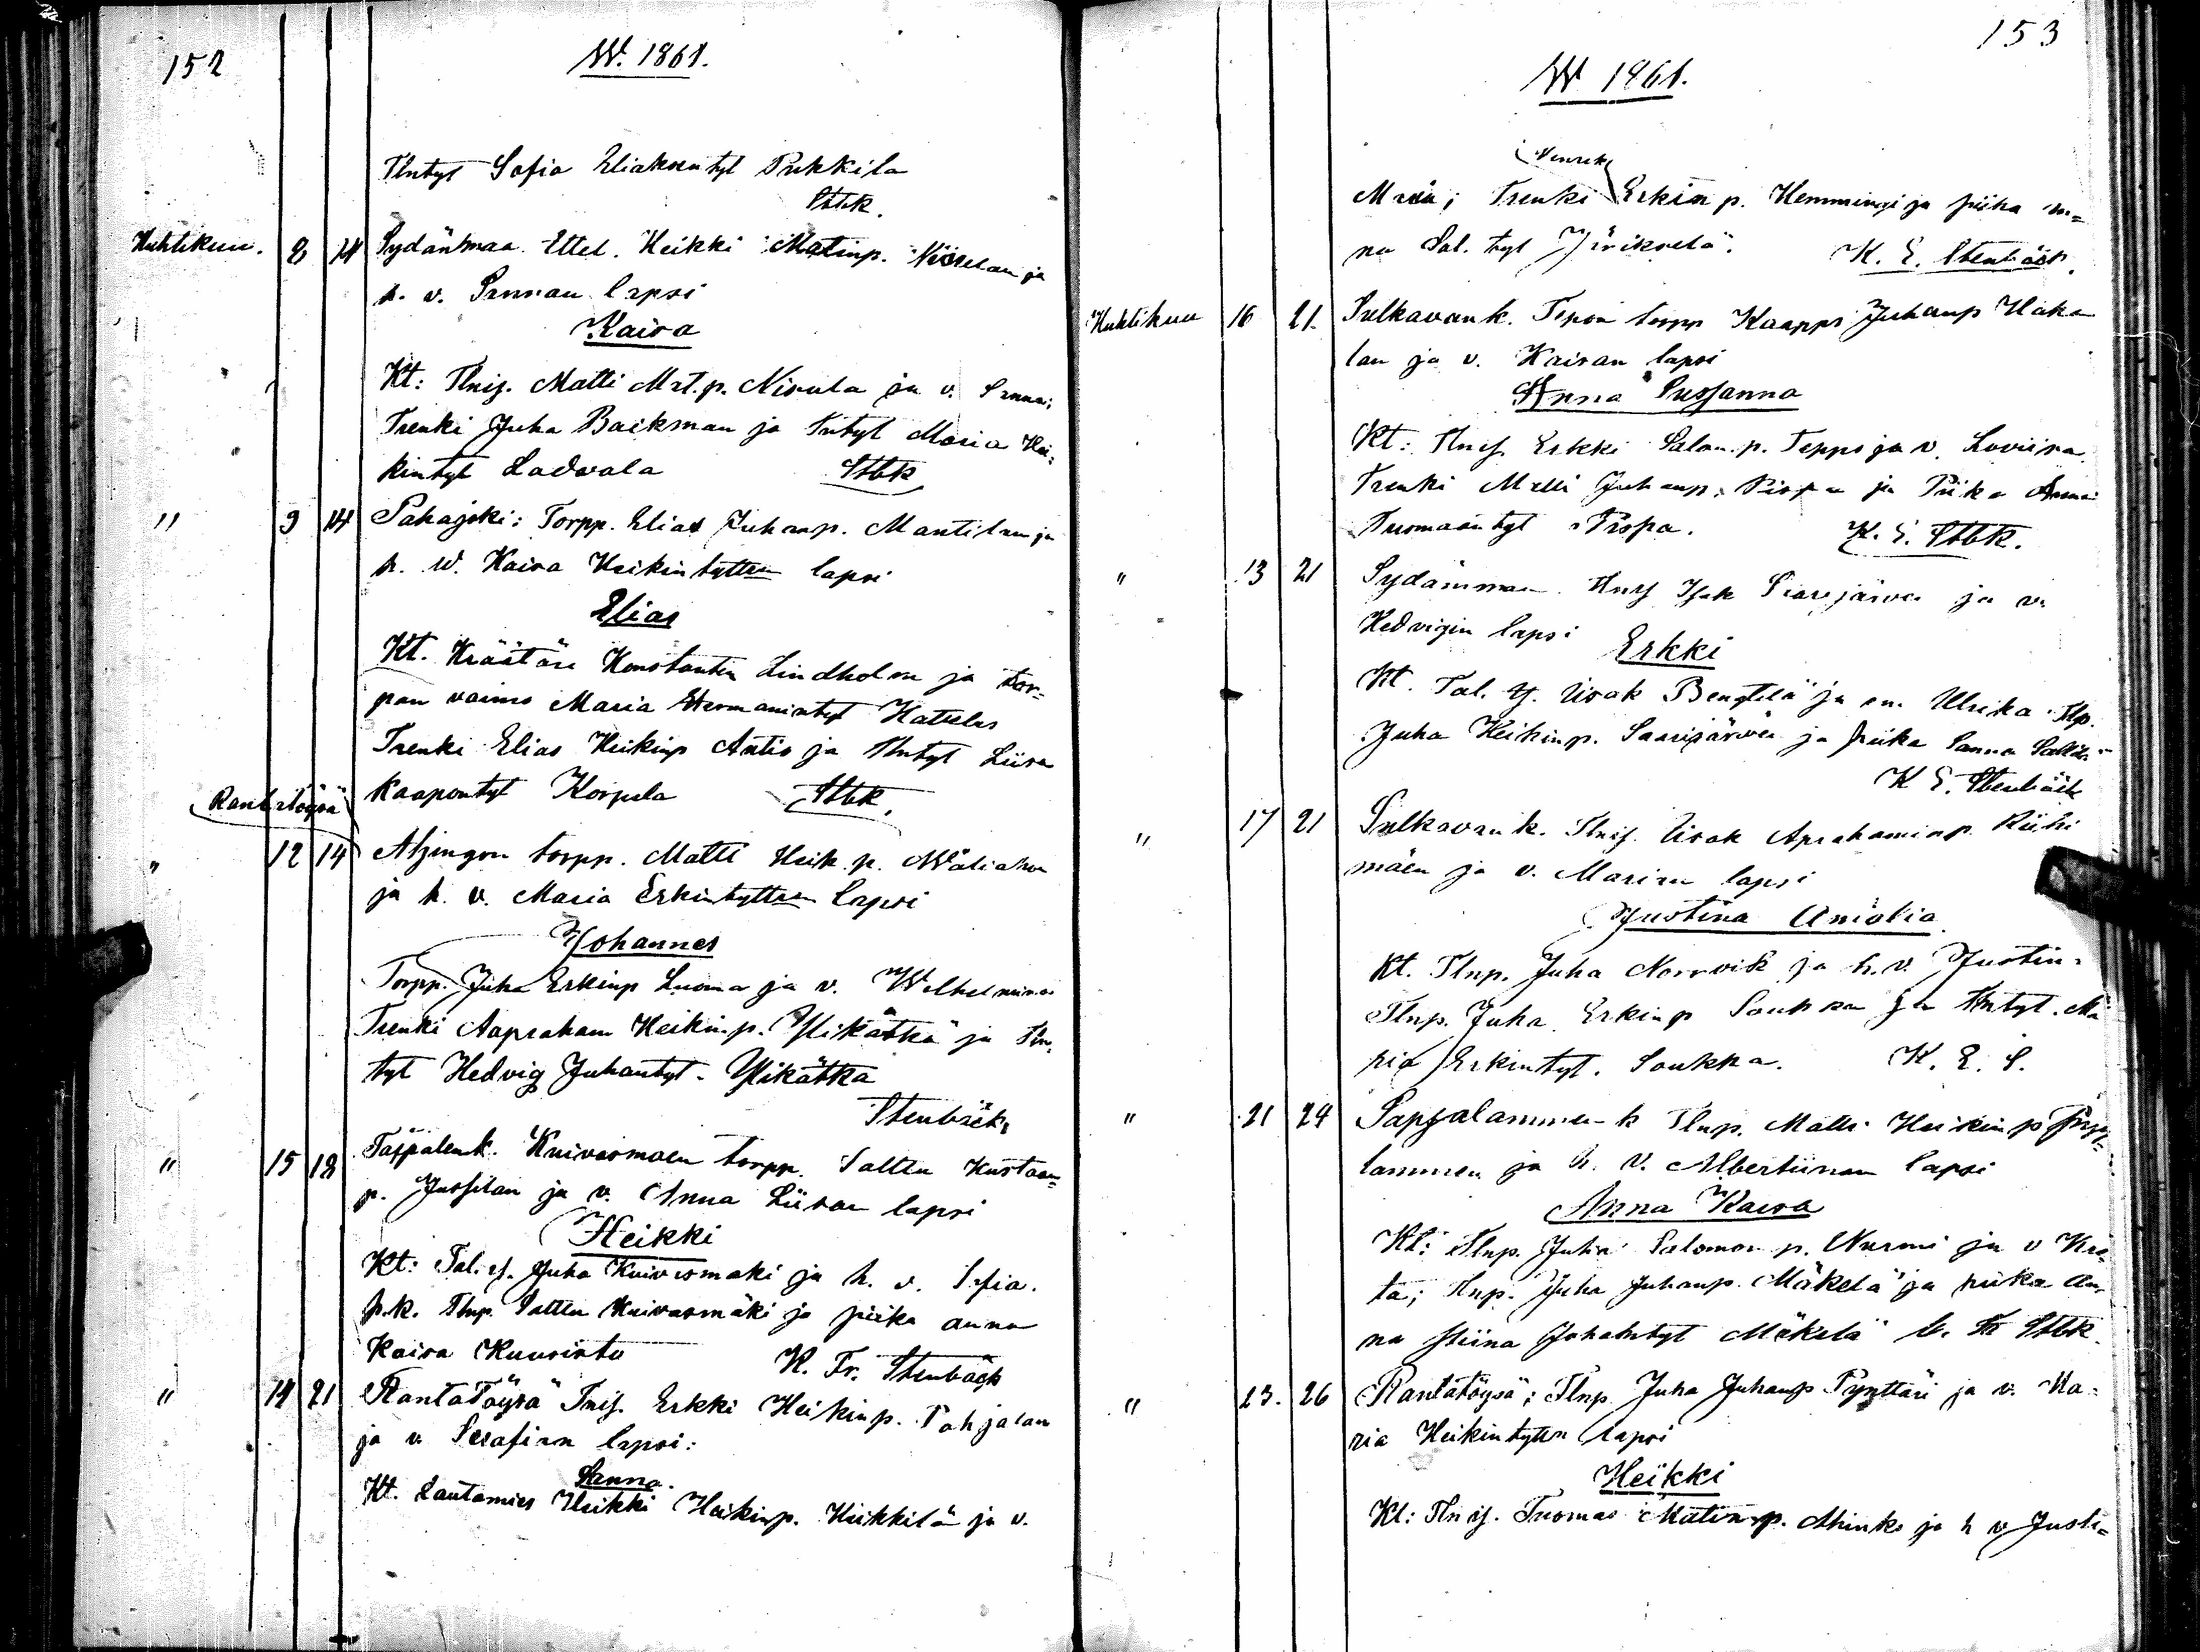 152
W. 1861.
Tlntyt Sofia Eliaksentyt Pukkila
Stbk.
Huhtikuu. 8 14 Sydänmaa Ettel. Heikki Matinp. Niselan ja
h. v. Sannan lapsi
Kaisa
Kt: Tlnij. Matti Mat. p. Nisula ja v. Sanna;
Trenki Juha Backman ja Tntyt Maria Hei-
kintyt Ladvala Stbk
" 9 14 Pahajoki: Torpp. Elias Juhanp. Mantilan ja
h. w. Kaisa Heikintytten lapsi
Elias
Kt. Kräätäri Konstantin Lindholm ja tor-
pan vaimo Maria Hermanintyt
Trenki Elias Heikinp Antio ja Tlntyt Liisa
Kaapontyt Korpela Stbk.
Rantatöysä
" 12 14 Aljingon torpp. Matti Heik. p. Wäliahon
ja h. v. Maria Erkintytten lapsi
Johannes
Torpp. Juha Erkinp Luoma ja v. Wilhelmina
Trenki Aapraham Heikinp. Ylikätkä ja Tln-
tyt Hedvig Juhantyt. Ylikätkä
Stenbäck
" 15 18 Taipalenk. Kuivasmäen torpp. Salten Kustaan-
p. Jussilan ja v. Anna Liisan lapsi
Heikki
Kt: Tal. ij. Juha Kuivasmäki ja h. v. Sofia.
p.k. Tlnp. Salten Kuivasmäki ja piika anna
Kaisa Kuusisto K. Fr. Stenbäck
" 14 21 RantaTöysä Tnij. Erkki Heikinp. Pohjalan
ja v. Serafinan lapsi:
Sanna.
Kt. Lautamies Heikki Heikinp. Heikkilä ja v.
153
W 1861.
Henrik
Maria; Trenki Erkin p. Hemminki ja piika An-
na Sal. tyt Yrikselä. K. E. Stenbäck.
Huhtikuu 16 21. Sulkavank. Tepon torpp Kaappo Juhanp Haka
lan ja v. Kaisan lapsi
Anna Sussanna
Kt: Tlnij. Erkki Salom. p. Teppo ja v. Loviisa.
Trenki Matti Juhanp. Pispa ja Piika Anna
Tuomaantyt Pispa. K. E. Stbk.
" 13 21 Sydänmaa Tlnij Isak Saarijärven ja v.
Hedvigin lapsi
Erkki
Kt. Tal. ij. Iisak Bengtilä ja em. Ulrika Tlp.
Juha Heikinp. Saarijärven ja piika Sanna
K E. Stenbäck
" 17 21 Sulkavank. Tlnij. Iisak Aprahaminp. Riihi
mäen ja v. Marian lapsi
Justina Amalia
Kt. Tlnp. Juha Norrvik ja h. v. Justin-
Tlnp. Juha Erkinp Soukka ja Tlntyt. Ma
ria Erkintyt. Soukka. K. E. S.
" 21 24 Sapsalammen-k Tlnp. Matti Heikinp
lammen ja h. v. Albertiinan lapsi
Anna Kaisa
Kt: Tlnp. Juha Salomon p. Nurmi ja v Kre-
ta; Tlnp. Juha Juhanp. Mäkelä ja piika An-
na Stiina Johantyt Mäkelä Stbk.
" 23. 26 Rantatöysä: Tlnp. Juha Juhanp Pynttäri ja v. Ma-
ria Heikintytten lapsi
Heikki
Kt: Tlnij. Tuomas Matinp. Ahinko ja h v Justi-